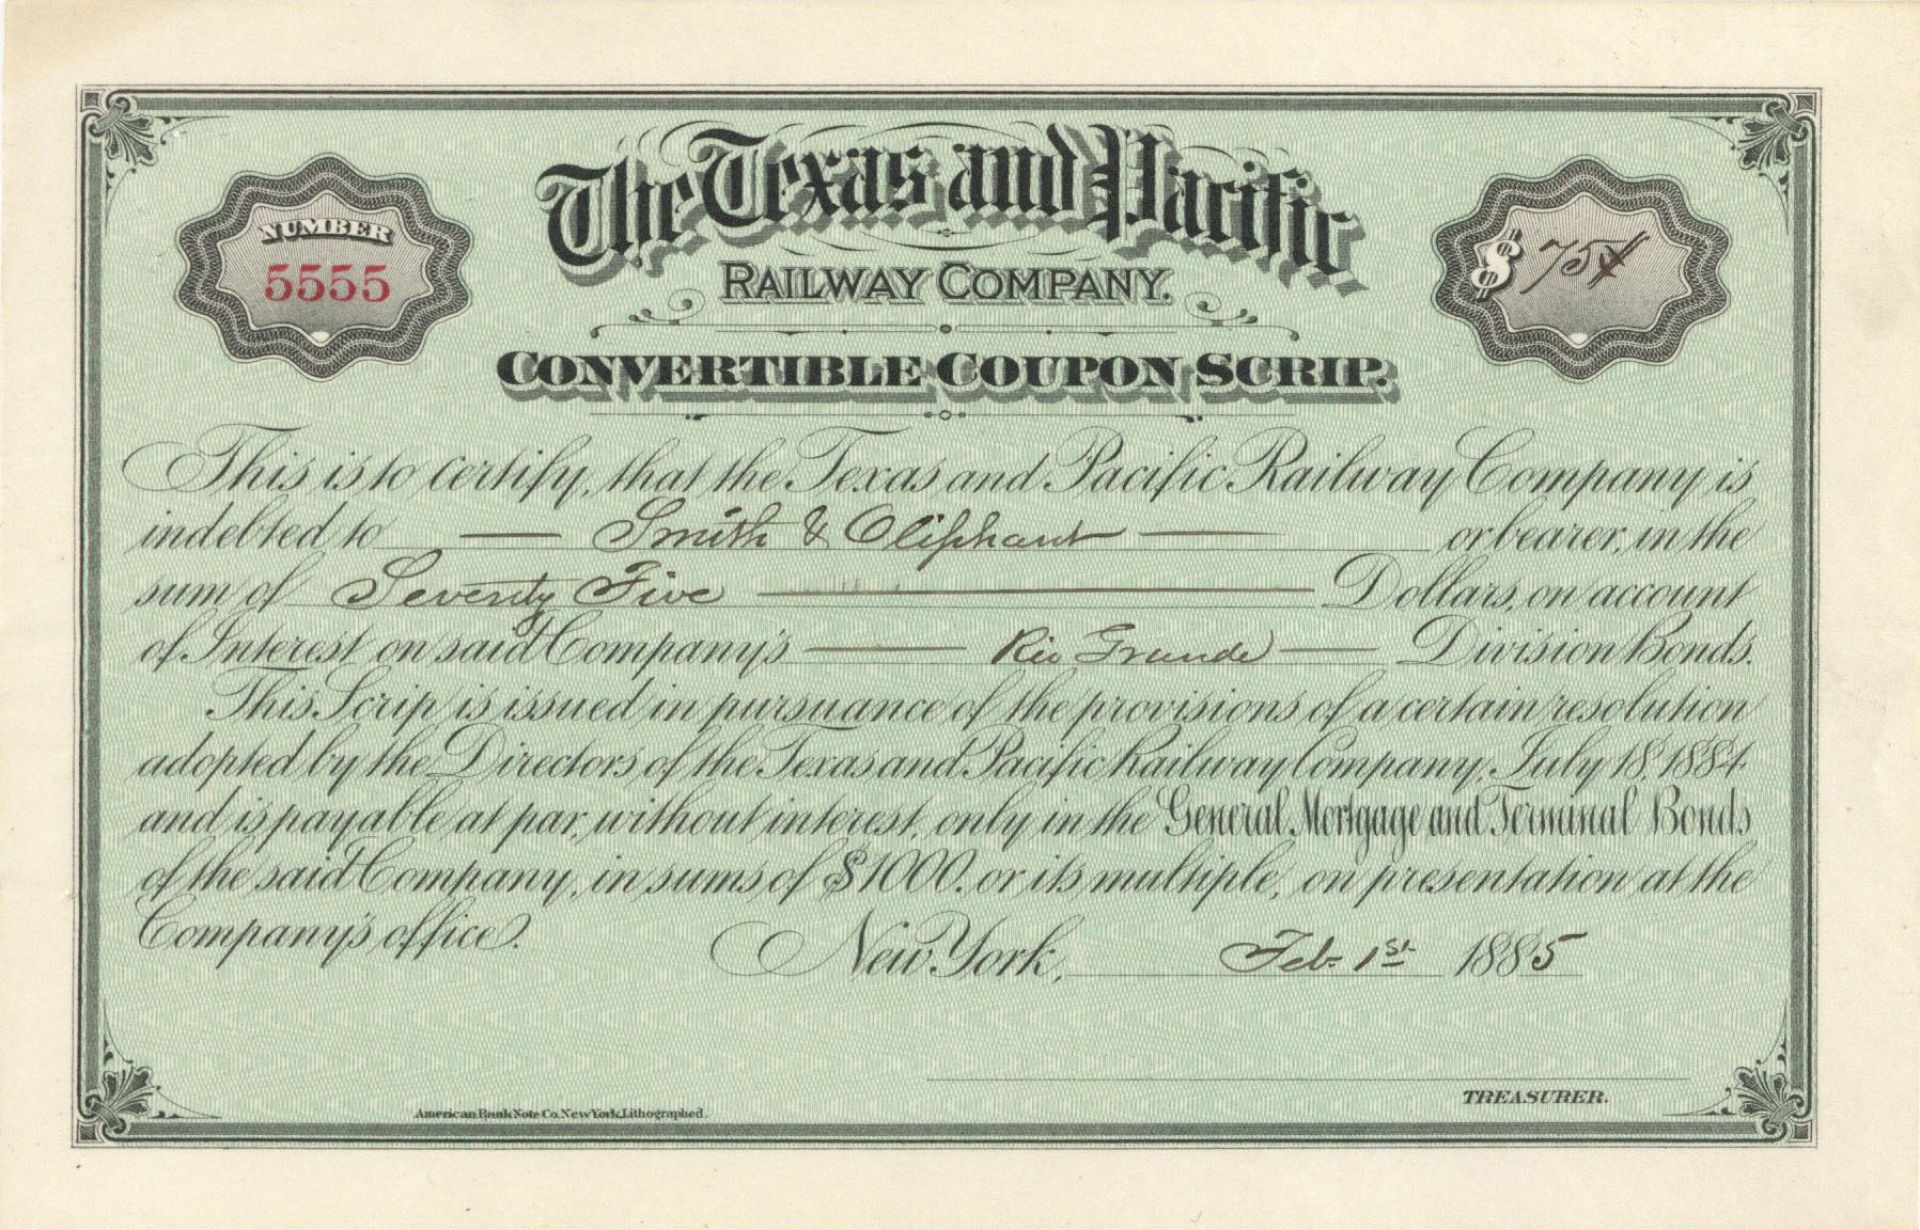 The Texas and Pacific
RAILWAY COMPANY.
NUMBER
5555
$ 75
CONVERTIBLE COUPON SCRIP.
This is to certify, that the Texas and Pacific Railway Company is
indebted to — Smith & Oliphant — or bearer, in the
sum of Seventy Five — Dollars, on account
of Interest on said Company's — Rio Grande — Division Bonds.
This Scrip is issued in pursuance of the provisions of a certain resolution
adopted by the Directors of the Texas and Pacific Railway Company, July 18, 1884
and is payable at par, without interest, only in the General Mortgage and Terminal Bonds
of the said Company, in sums of $1000. or its multiple, on presentation at the
Company's office.
New York, Feb. 1st 1885
TREASURER.
American Bank Note Co. New York, Lithographed.